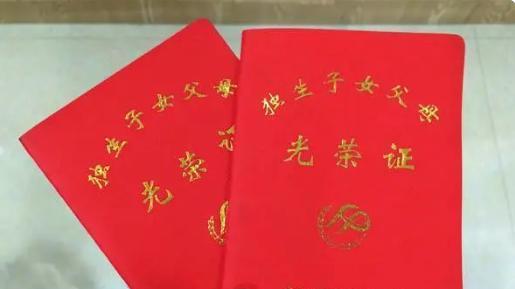 独生子女父母
光荣证
独生子女父母
光荣证